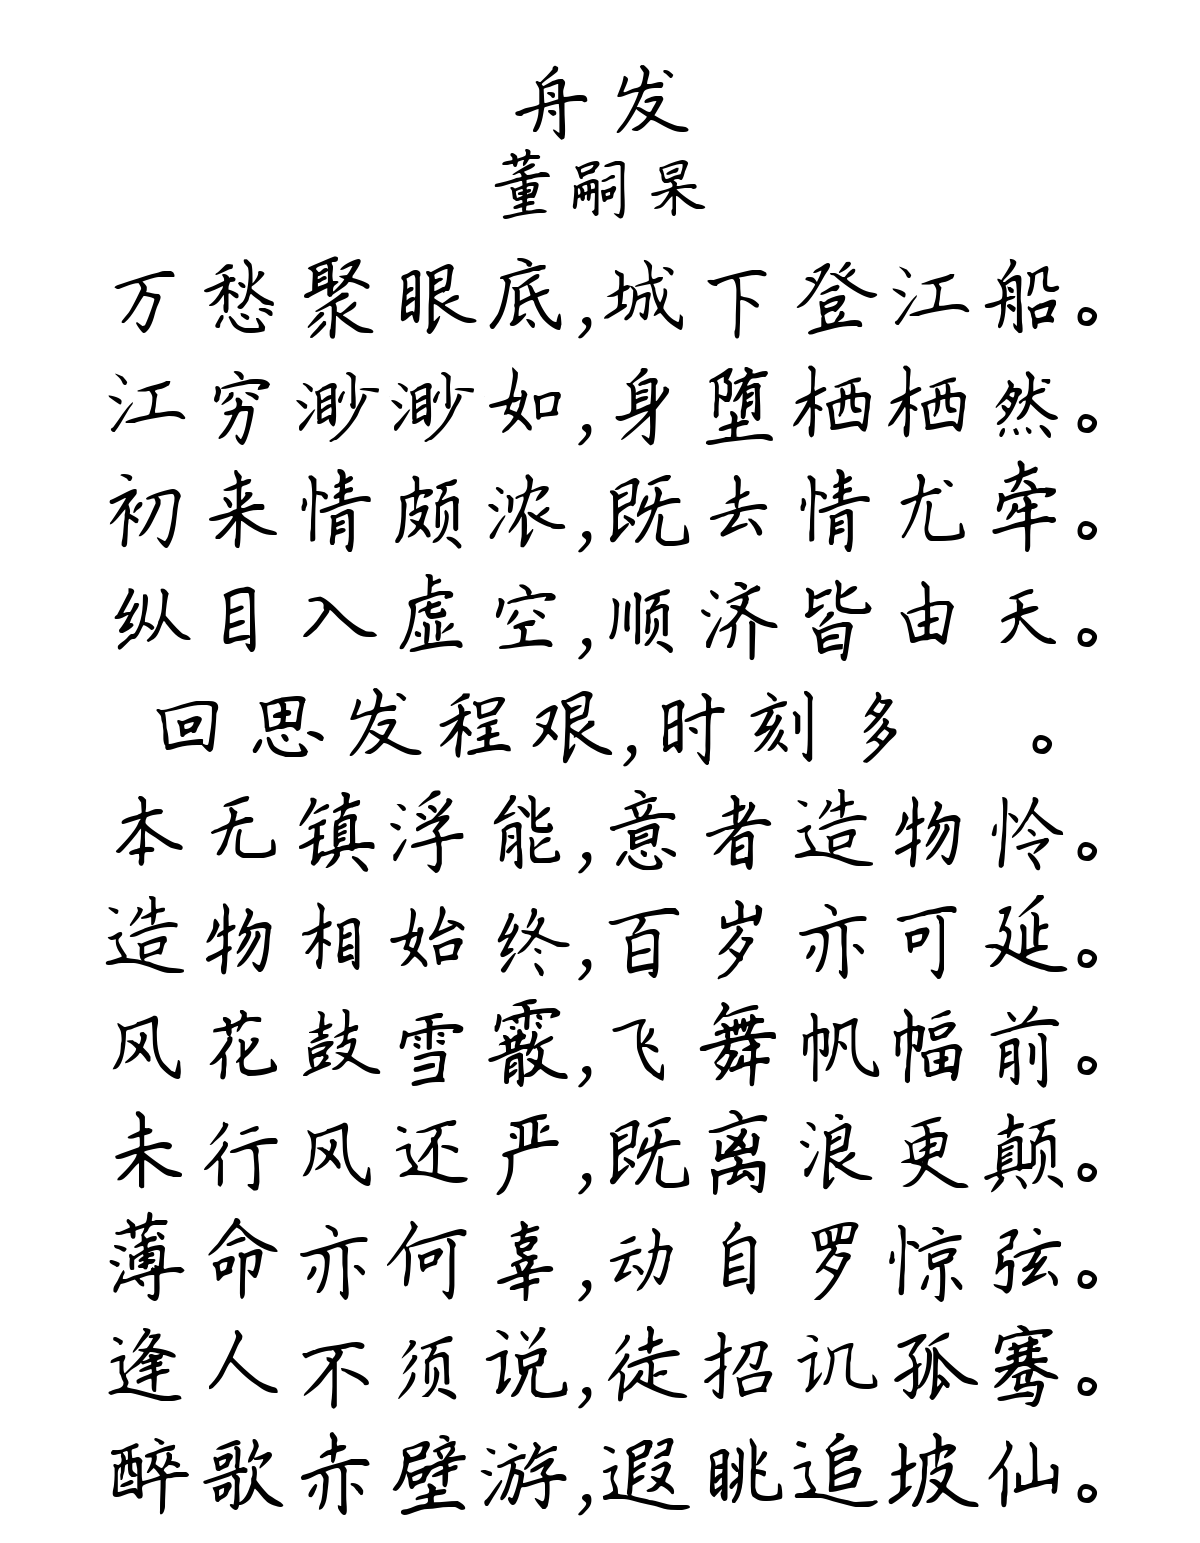 舟发
董嗣杲
万愁聚眼底,城下登江船。
江穷渺渺如,身堕栖栖然。
初来情颇浓,既去情尤牵。
纵目入虚空,顺济皆由天。
回思发程艰,时刻多 。
本无镇浮能,意者造物怜。
造物相始终,百岁亦可延。
风花鼓雪霰,飞舞帆幅前。
未行风还严,既离浪更颠。
薄命亦何辜,动自罗惊弦。
逢人不须说,徒招讥孤骞。
醉歌赤壁游,遐眺追坡仙。